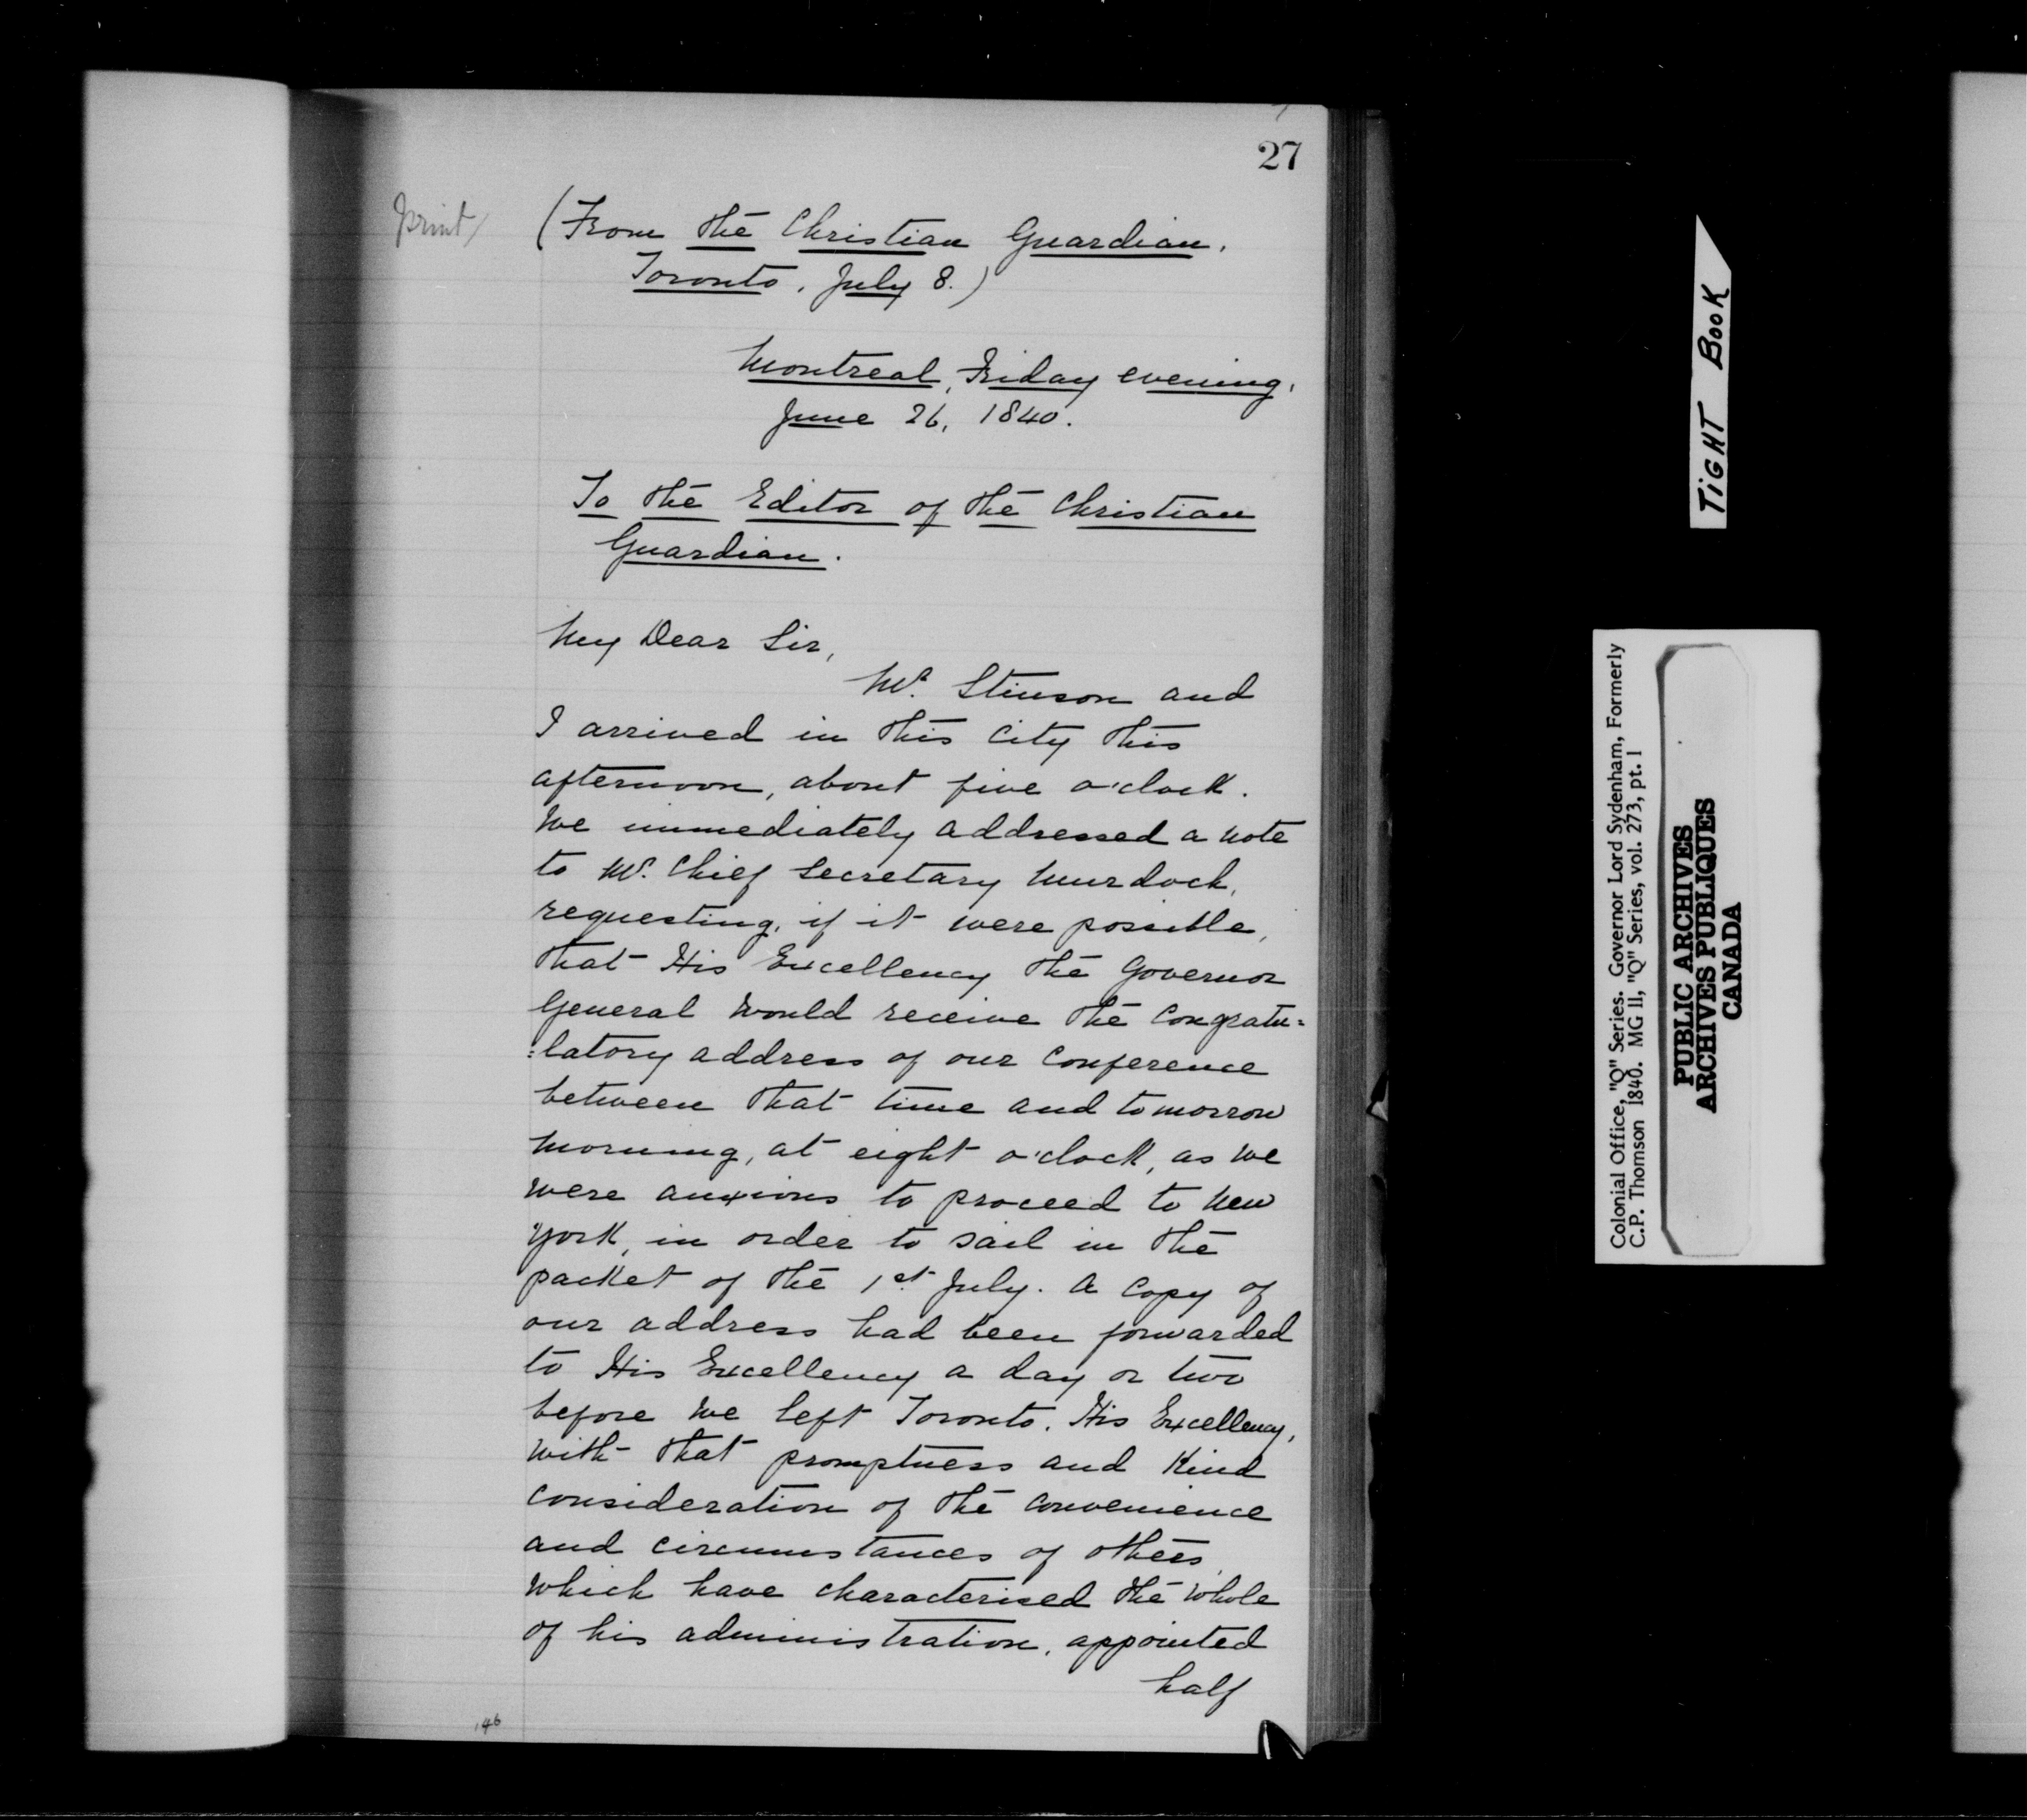 27
print/
(From the Christian Guardian,
Toronto, July 8.)
Montreal, Friday evening,
June 26, 1840.
To the Editor of the Christian
Guardian.
My Dear Sir,
Mr. Stinson and
I arrived in this City this
afternoon, about five o'clock.
We immediately addressed a note
to Mr. Chief Secretary Murdock,
requesting, if it were possible,
that His Excellency the Governor
General would receive the Congratu=
:latory address of our Conference
between that time and tomorrow
morning, at eight o'clock, as we
were anxious to proceed to New
York, in order to sail in the
packet of the 1st July. A Copy of
our address had been forwarded
to His Excellency a day or two
before we left Toronto. His Excellency,
with that promptness and kind
consideration of the convenience
and circumstances of others,
which have characterised the whole
of his administration, appointed
half
146
TIGHT BOOK
Colonial Office, "Q" Series. Governor Lord Sydenham, Formerly
C.P. Thomson 1840. MG 11, "Q" Series, vol. 273, pt. 1
PUBLIC ARCHIVES
ARCHIVES PUBLIQUES
CANADA